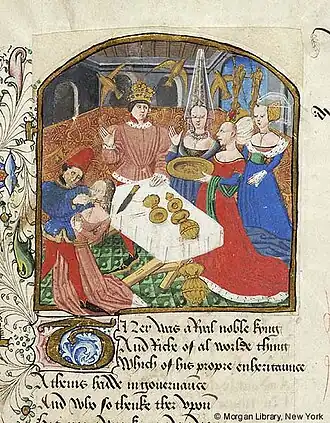 Ther was a Rial noble kyng
And Riche of al worldes thing
Which of his propre enheritaunce
Athenis hadde in governaunce
And who so thenke ther vpon
© Morgan Library, New York